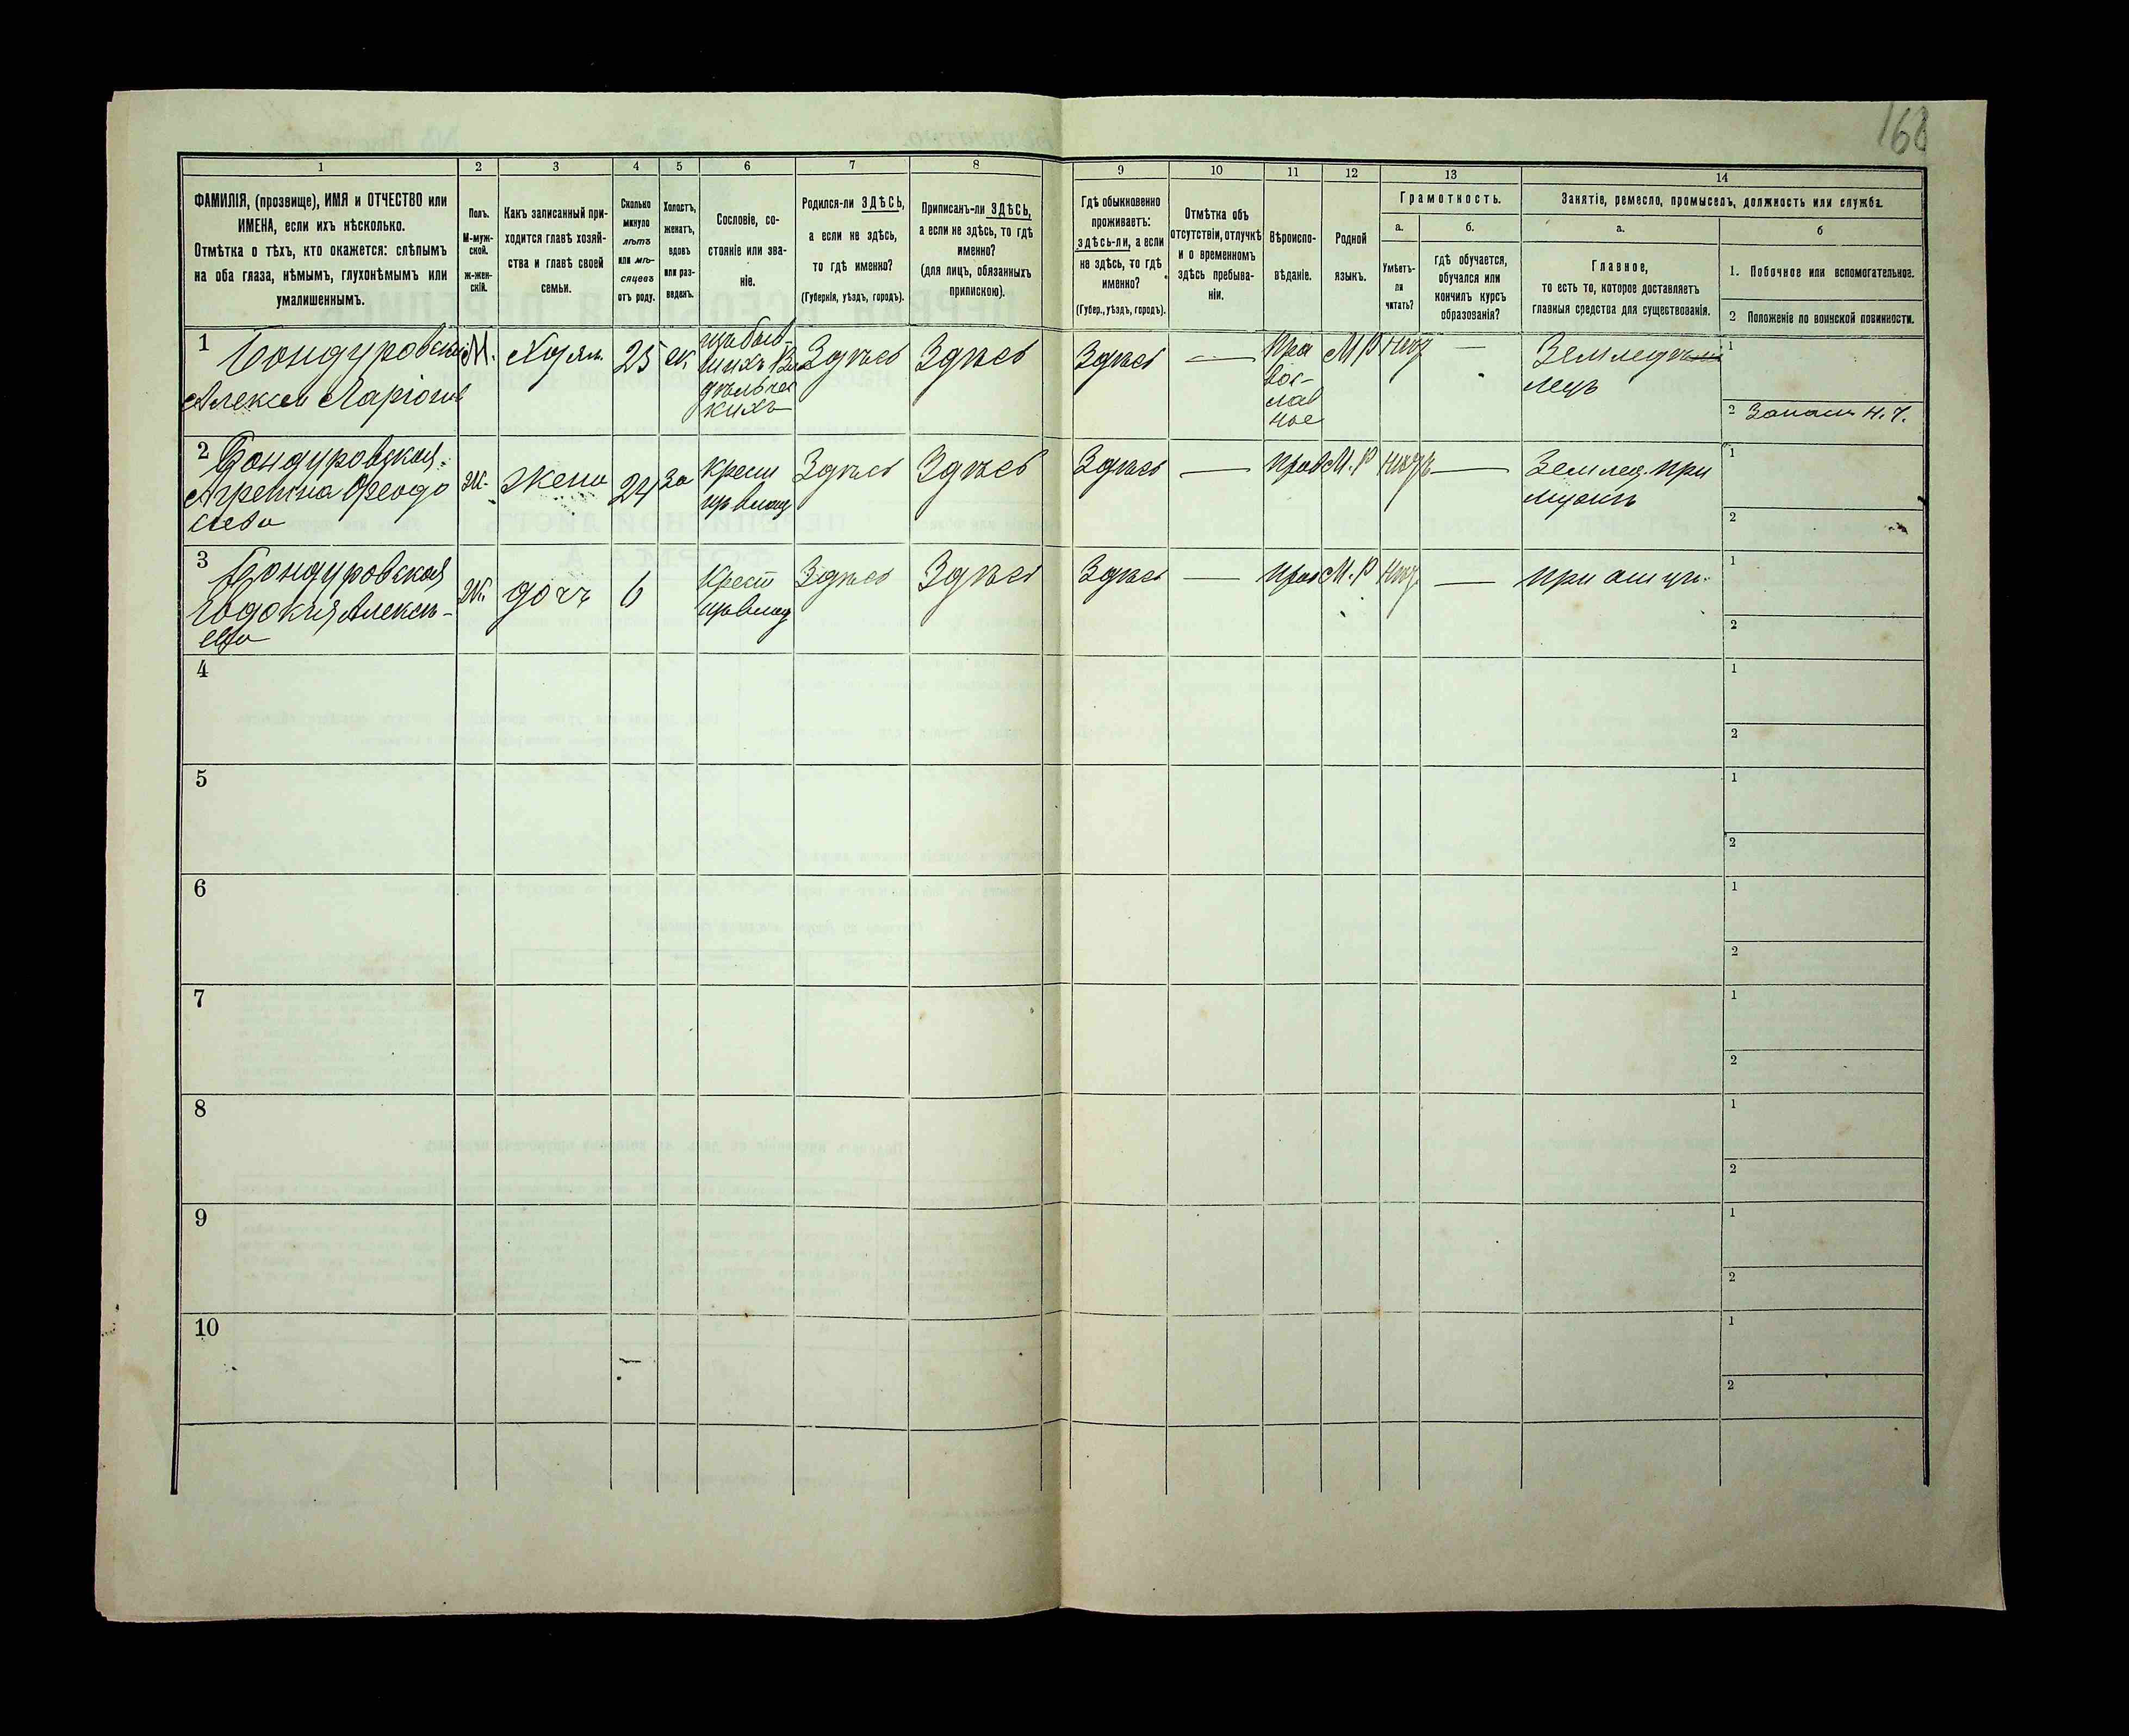 168
1
2
3
4
5
6
7
8
9
10
11
12
13
14
ФАМИЛІЯ, (прозвище), ИМЯ и ОТЧЕСТВО или
ИМЕНА, если ихъ нѣсколько.
Отмѣтка о тѣхъ, кто окажется: слѣпымъ
на оба глаза, нѣмымъ, глухонѣмымъ или
умалишеннымъ.
Полъ.
М-муж-
ской.
ж-жен-
скій.
Какъ записанный при-
ходится главѣ хозяй-
ства и главѣ своей
семьи.
Сколько
минуло
лѣтъ
или мѣ-
сяцевъ
отъ роду.
Холостъ,
женатъ,
вдовъ
или раз-
веденъ.
Сословіе, со-
стояніе или зва-
ніе.
Родился-ли ЗДѢСЬ,
а если не здѣсь,
то гдѣ именно?
(Губернія, уѣздъ, городъ).
Приписанъ-ли ЗДѢСЬ,
а если не здѣсь, то гдѣ
именно?
(для лицъ, обязанныхъ
припискою).
Гдѣ обыкновенно
проживаетъ:
здѣсь-ли, а если
не здѣсь, то гдѣ
именно?
(Губер., уѣздъ, городъ).
Отмѣтка объ
отсутствіи, отлучкѣ
и о временномъ
здѣсь пребыва-
ніи.
Вѣроиспо-
вѣданіе.
Родной
языкъ.
Грамотность.
а.
Умѣетъ-
ли
читать?
б.
гдѣ обучается,
обучался или
кончилъ курсъ
образованія?
Занятіе, ремесло, промыселъ, должность или служба.
а.
Главное,
то есть то, которое доставляетъ
главныя средства для существованія.
б
1. Побочное или вспомогательное.
2 Положеніе по воинской повинности.
1 Бондуровскій
Алексей Ларіонов
М.
Хозяи.
25
жен.
дѣльчес
кихъ
Здѣсь
Здѣсь
Здѣсь
—
Пра
вос-
лав
ное
М Р
—
Земледѣ
лецъ
1
2 Запасн Н. Ч.
2 Бондуровская
Агрепина Феодо
сиева
Ж.
жена
24
За
крест
Здѣсь
Здѣсь
Здѣсь
—
прав
М. Р
—
Землед. при
мужѣ
1
2
3 Бондуровская
Евдокия Алексѣ-
ева
Ж.
дочь
6
Крест
Здѣсь
Здѣсь
Здѣсь
—
прав
М. Р
—
при отцѣ.
1
2
4
1
2
5
1
2
6
1
2
7
1
2
8
1
2
9
1
2
10
1
2